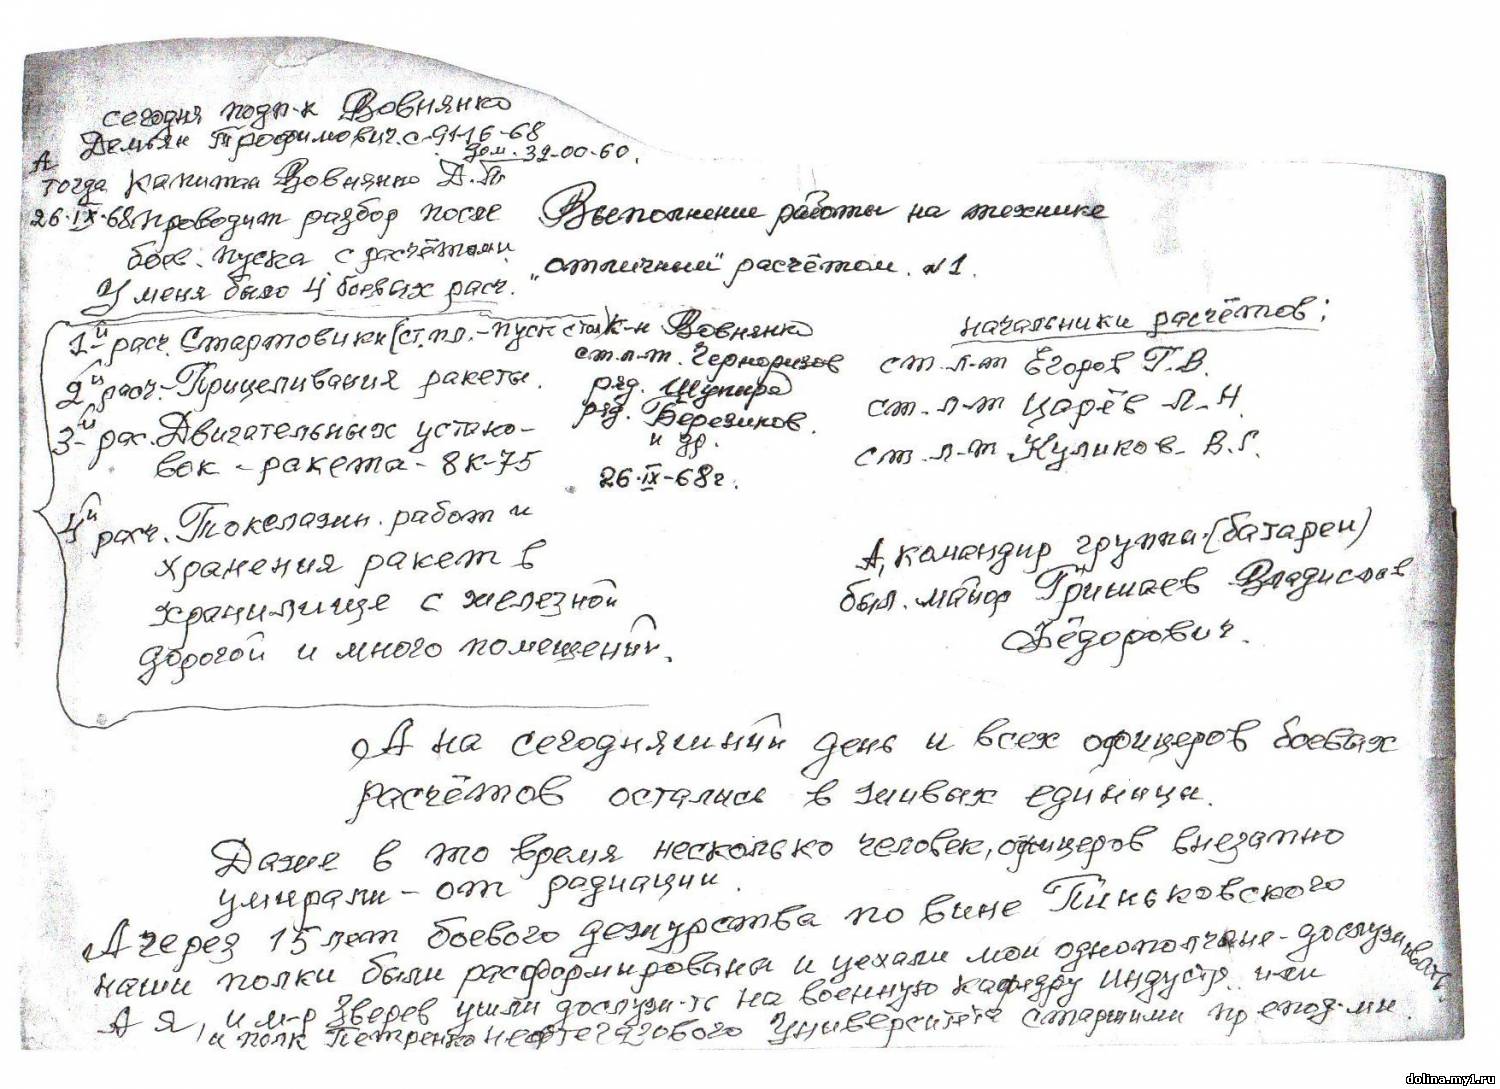 сегодня подп-к Вовнянко
Демьян Трофимович. с-91-16-68
дом. 32-00-60.
А
тогда капитан Вовнянко Д.Т.
26.IX-68 проводит разбор после
боев. пуска с расчётами.
У меня было 4 боевых расч.
Выполнение работы на технике
"отличным" расчётом №1.
1-й расч. Стартовики (ст. пл. - пуск стол)
2-й расч. - Прицеливания ракеты.
3-й рас. Двигательных устано-
вок - ракета - 8К-75
4й расч. Такелажн. работ и
хранения ракет в
хранилище с железной
дорогой и много помещений.
К-н Вовнянко
ст. л-т. Черноризов
ряд. Щупира
ряд. Березиков.
и др.
26.IX-68г.
начальники расчётов:
ст. л-т Егоров Г.В.
ст. л-т Царёв Л.Н.
ст. л-т Куликов В.Г.
А, командир группы (батареи)
был. майор Гришаев Владислав
Фёдорович.
А на сегодняшний день и всех офицеров боевых
расчётов остались в живых единицы.
Даже в то время несколько человек, офицеров внезапно
умирали - от радиации.
А через 15 лет боевого дежурства по вине Пиньковского
наши полки были расформированы и уехали мои однополчане - дослуживать.
А я, и м-р Зверев ушли дослуж-ть на военную кафедру индустр. или
и полк Петренко нефтегазового Университета старшими препод-ми.
dolina.my1.ru